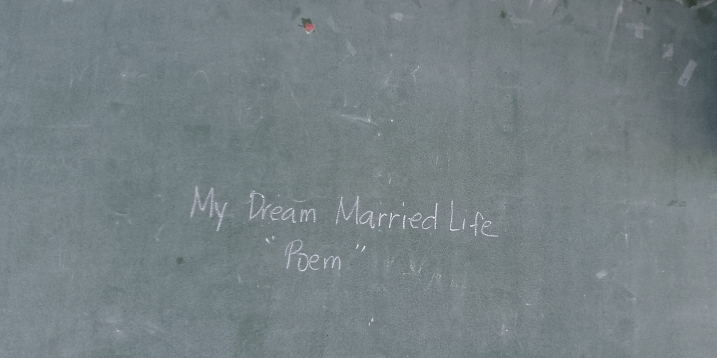 My Dream Married Life
"Poem"